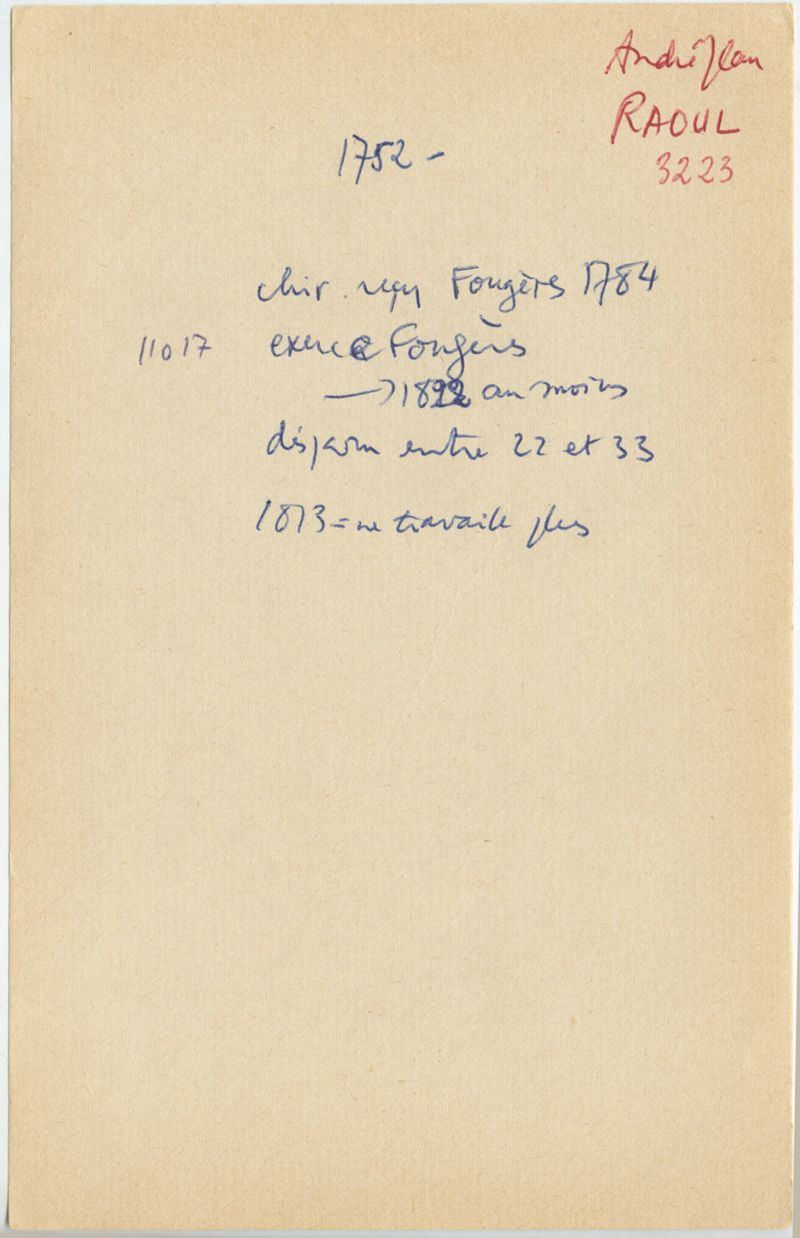 André Jean
RAOUL
3223
1752 -
chir. reçu Fougères 1784
11017 exerce Fougères
→ 1822 au moins
disparu entre 22 et 33
1813 = ne travaille plus